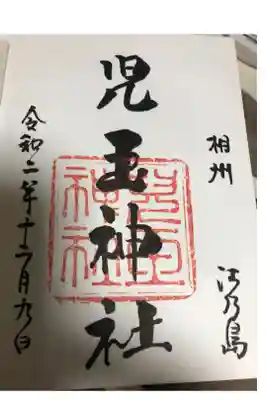 相州 江乃島
児玉神社
児玉神社
令和二年十二月九日